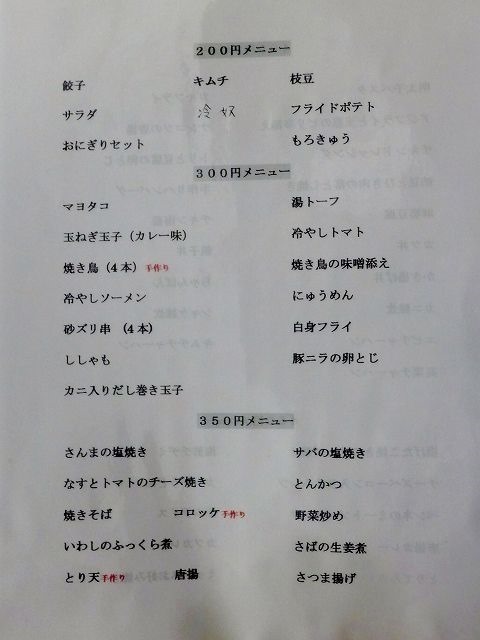 200円メニュー
餃子 キムチ 枝豆
サラダ 冷奴 フライドポテト
おにぎりセット もろきゅう
300円メニュー
マヨタコ 湯トーフ
玉ねぎ玉子（カレー味） 冷やしトマト
焼き鳥（4本）手作り 焼き鳥の味噌添え
冷やしソーメン にゅうめん
砂ズリ串（4本） 白身フライ
ししゃも 豚ニラの卵とじ
カニ入りだし巻き玉子
350円メニュー
さんまの塩焼き サバの塩焼き
なすとトマトのチーズ焼き とんかつ
焼きそば コロッケ手作り 野菜炒め
いわしのふっくら煮 さばの生姜煮
とり天手作り 唐揚 さつま揚げ